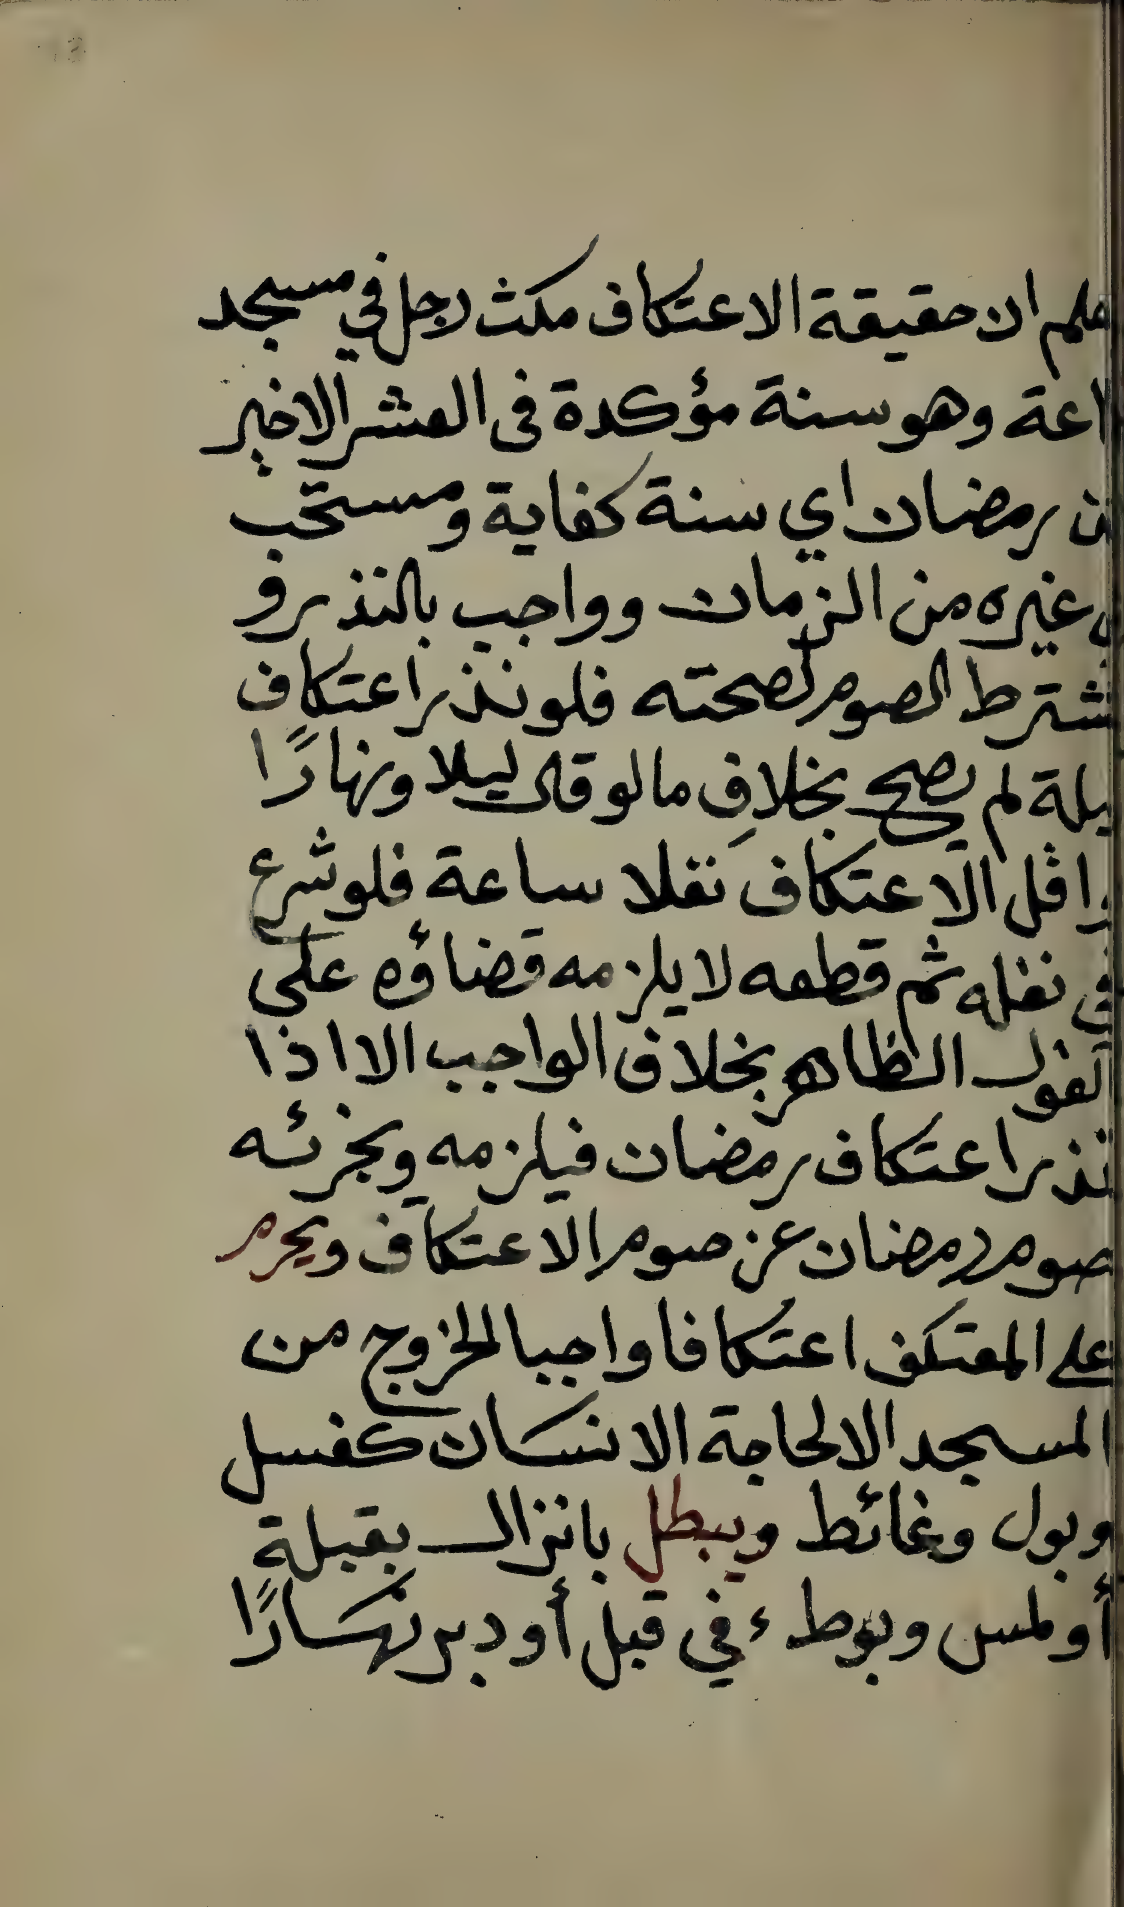 علم ان حقيقة الاعتكاف مكث رجل في مسجد
اعة وهو سنة مؤكدة فى العشر الاخير
ن رمضان اي سنة كفاية ومستحب
غيره من الزمان وواجب بالنذر و
شترط الصوم لصحته فلو نذر اعتكاف
يلة لم يصح بخلافِ ما لو قال ليلا ونهارًا
واقل الاعتكاف نفلا ساعة فلو شرع
في نفله ثم قطعه لا يلزمه قضاؤه على
القول الظاهر بخلاف الواجب الا اذا
نذر اعتكاف رمضان فيلزمه ويجزئه
صوم رمضان عن صوم الاعتكاف ويحرم
على المعتكف اعتكافا واجبا الخروج من
المسجد الا لحاجة الانسان كغسل
وبول وغائط ويبطل بانزال بقبلة
أو لمس وبوطء في قبل أو دبر نهارًا